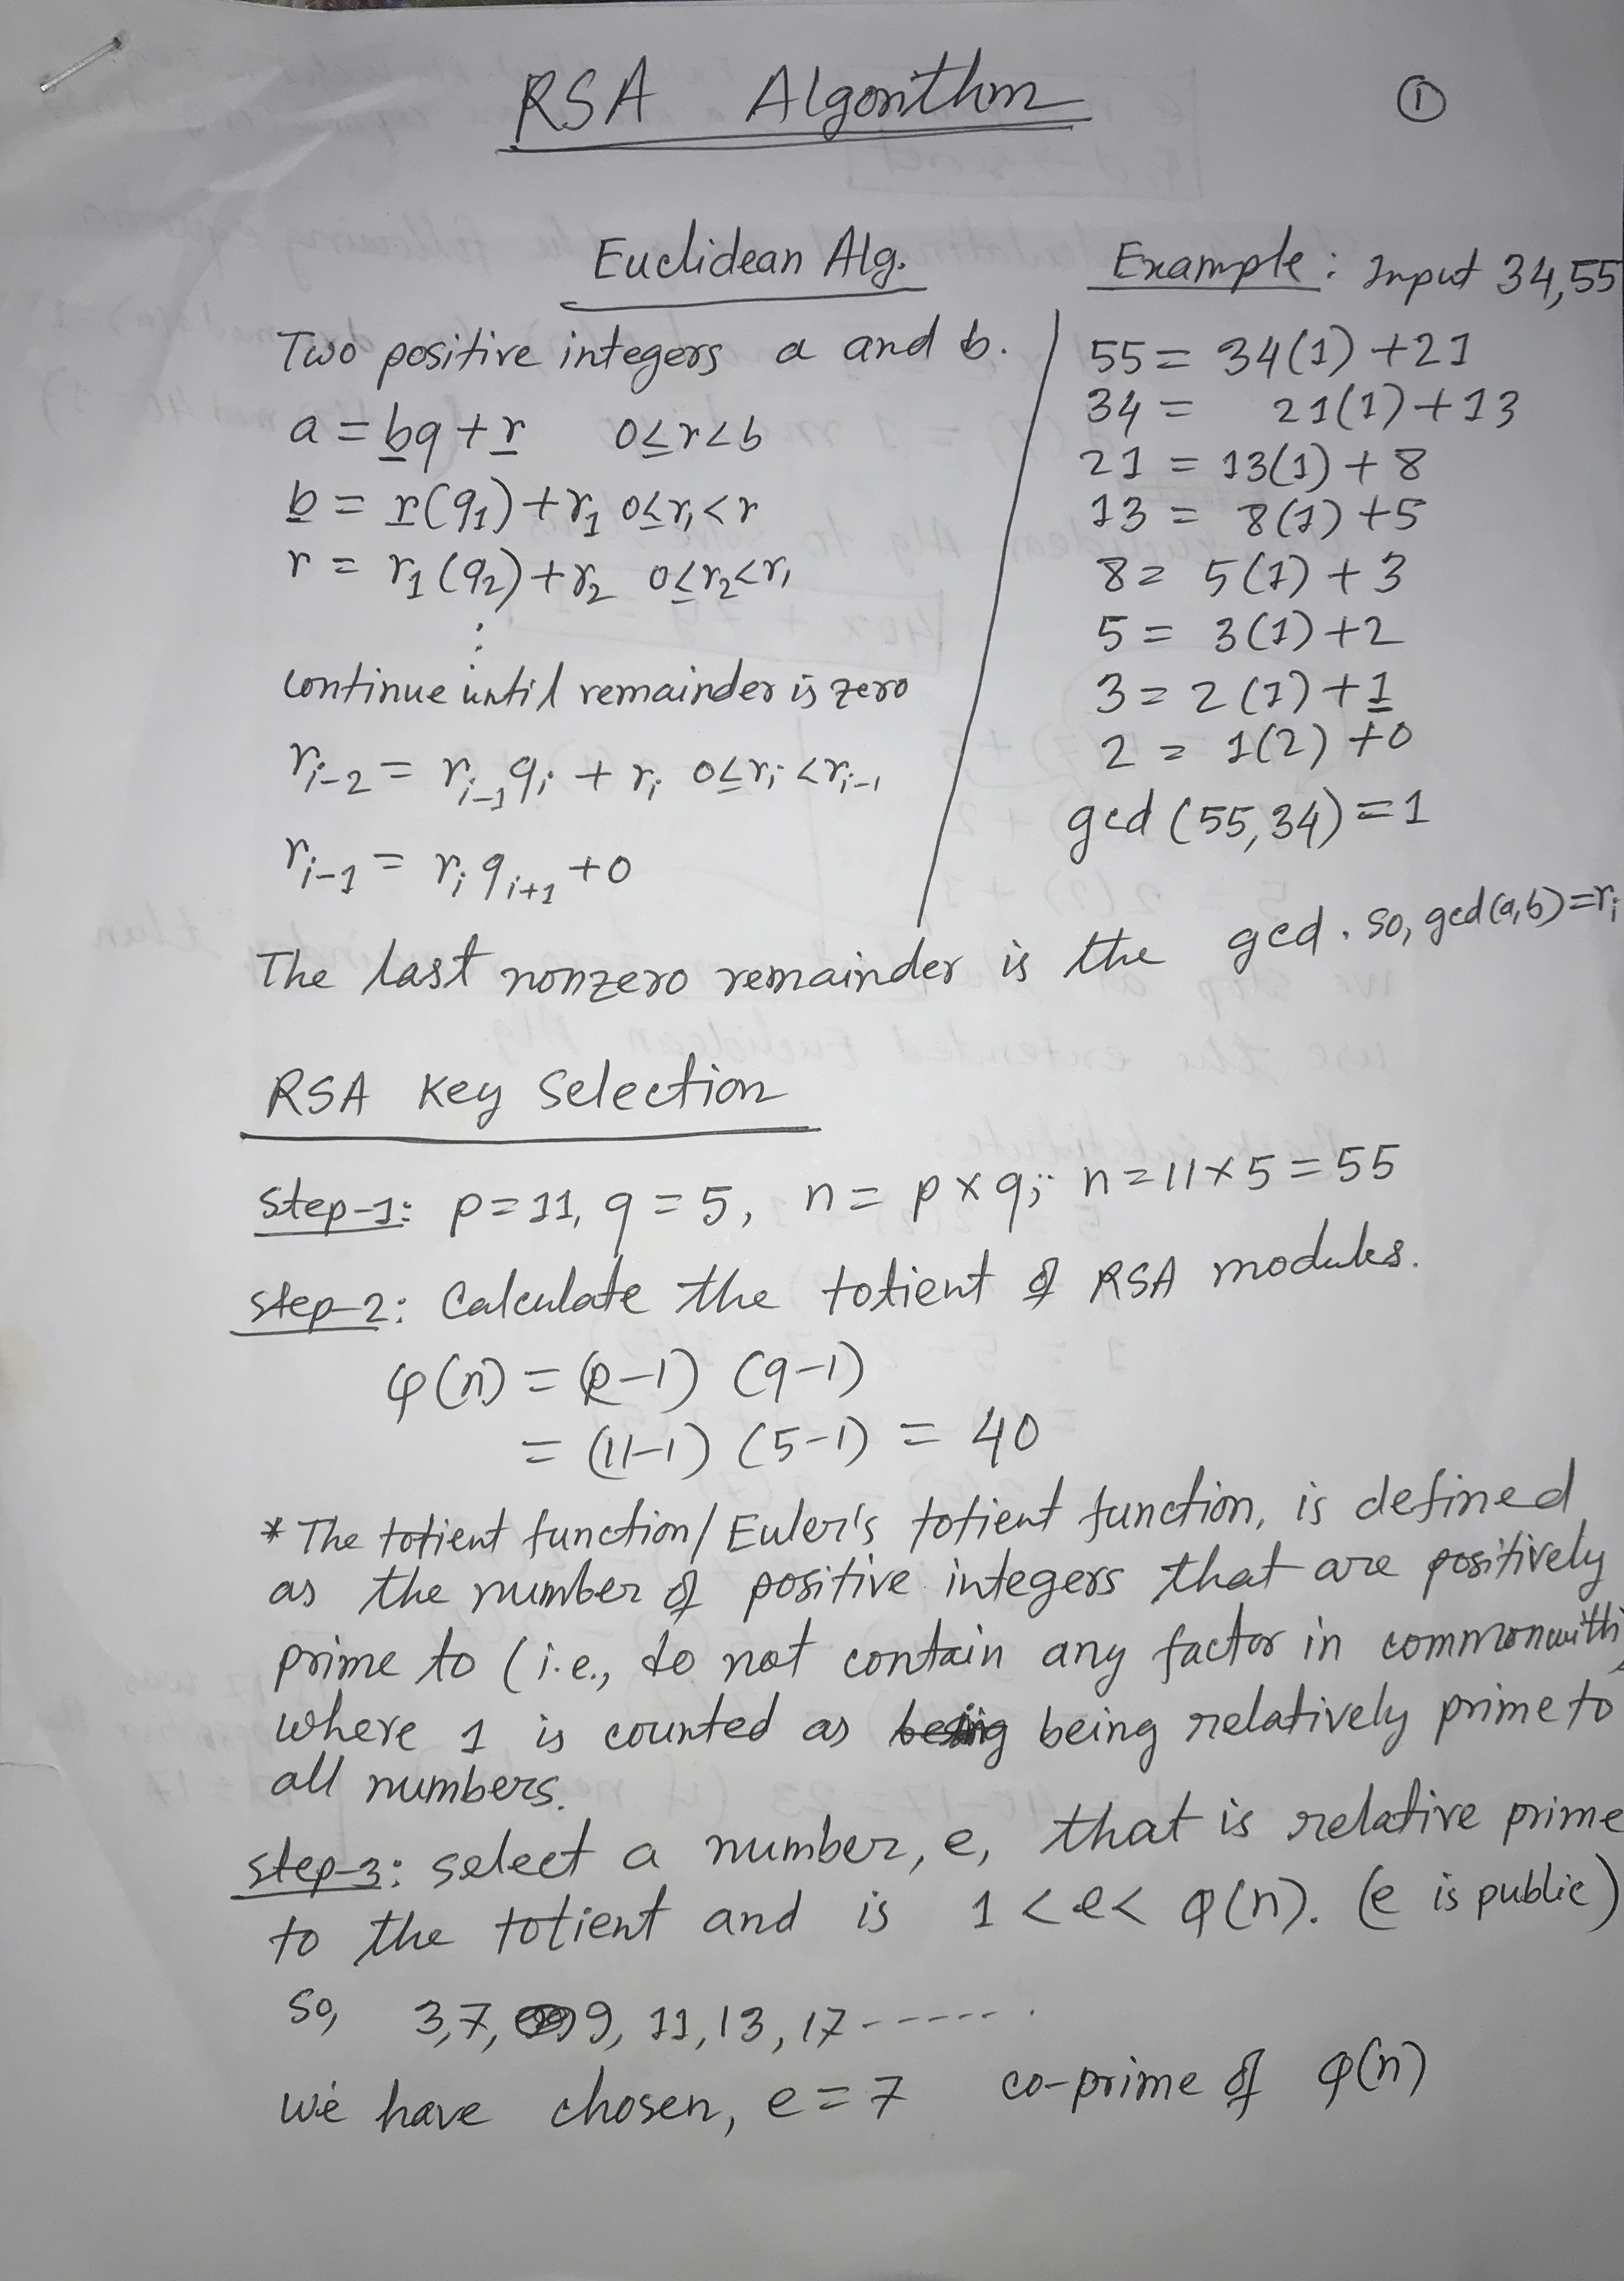 RSA Algorithm
①
Euclidean Alg.
Two positive integers a and b.
a = bq + r 0≤r<b
b = r(q₁) + r₁ 0≤r₁<r
r = r₁(q₂) + r₂ 0≤r₂<r₁
⋮
continue until remainder is zero
rᵢ₋₂ = rᵢ₋₁qᵢ + rᵢ 0≤rᵢ<rᵢ₋₁
rᵢ₋₁ = rᵢqᵢ₊₁ + 0
Example: Input 34,55
55 = 34(1) + 21
34 = 21(1) + 13
21 = 13(1) + 8
13 = 8(1) + 5
8 = 5(1) + 3
5 = 3(1) + 2
3 = 2(1) + 1
2 = 1(2) + 0
gcd (55,34) = 1
The last nonzero remainder is the gcd. so, gcd(a,b)=rᵢ
RSA Key Selection
Step-1: p=11, q=5, n = p×q; n=11×5=55
Step-2: Calculate the totient of RSA modules.
φ(n) = (p-1) (q-1)
= (11-1) (5-1) = 40
* The totient function/Euler's totient function, is defined
as the number of positive integers that are positively
prime to (i.e., do not contain any factor in common with)
where 1 is counted as being relatively prime to
all numbers.
Step-3: select a number, e, that is relative prime
to the totient and is 1 < e < φ(n). (e is public)
so, 3,7, 9, 11, 13, 17 ------ .
we have chosen, e=7 co-prime of φ(n)